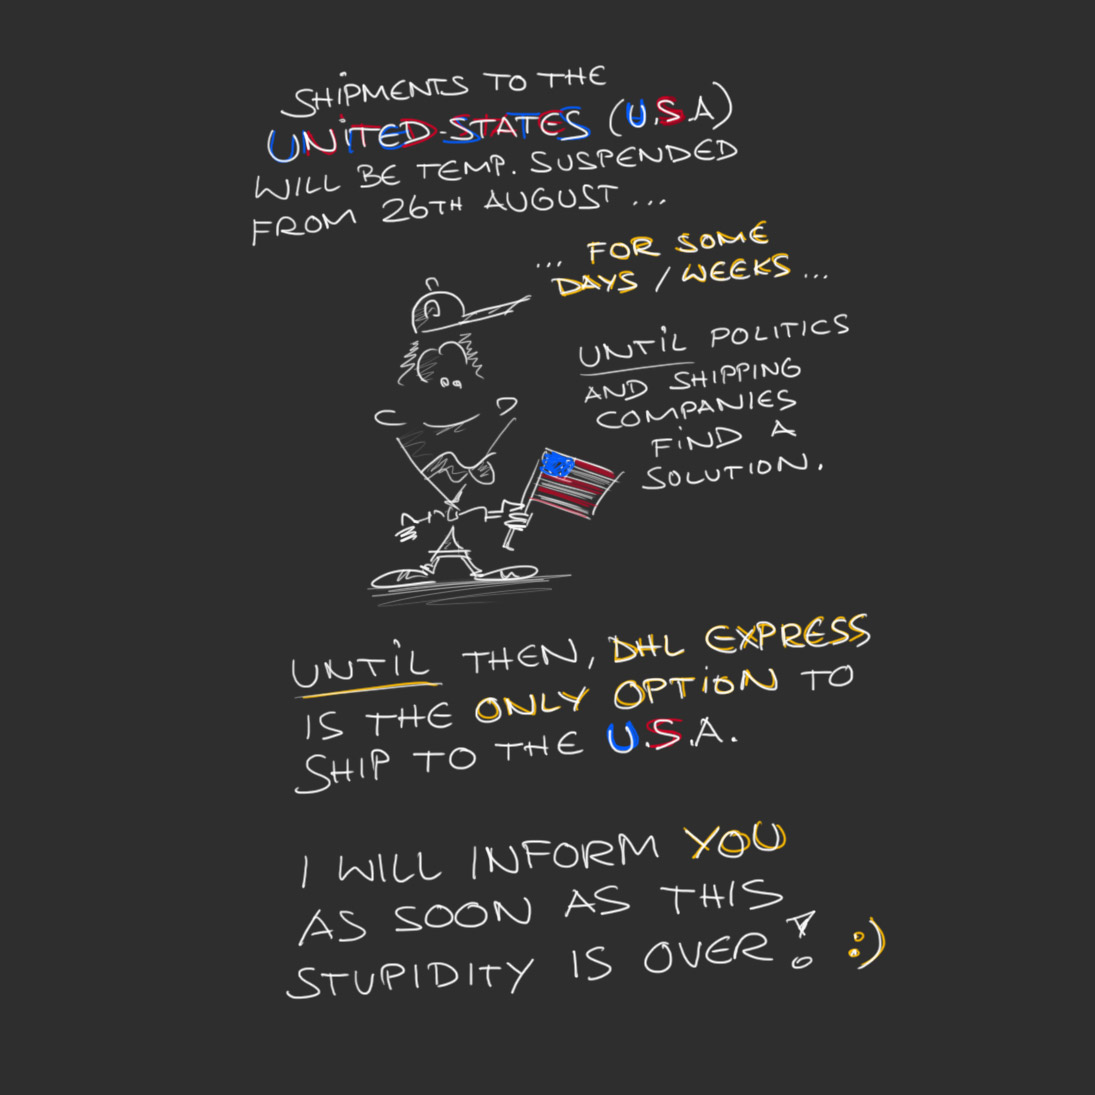 SHIPMENTS TO THE
UNITED-STATES (U.S.A)
WILL BE TEMP. SUSPENDED
FROM 26TH AUGUST ...
... FOR SOME
DAYS / WEEKS ...
UNTIL POLITICS
AND SHIPPING
COMPANIES
FIND A
SOLUTION.
UNTIL THEN, DHL EXPRESS
IS THE ONLY OPTION TO
SHIP TO THE U.S.A.
I WILL INFORM YOU
AS SOON AS THIS
STUPIDITY IS OVER! :)